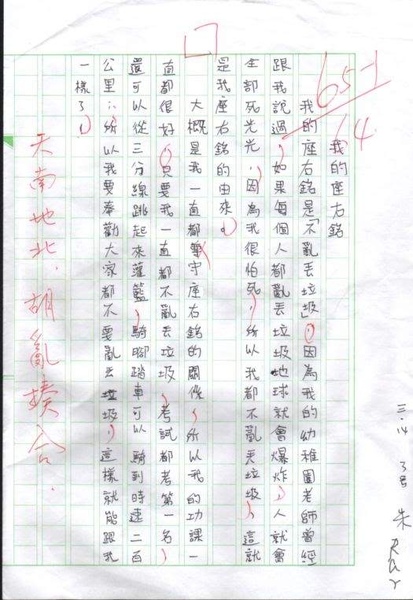 三.14 3號 朱
65-1
64
我的座右銘
我的座右銘是「不亂丟垃圾」。因為我的幼稚園老師曾經
跟我說過,如果每個人都亂丟垃圾地球就會爆炸,人就會
全部死光光,因為我很怕死,所以我都不亂丟垃圾,這就
是我座右銘的由來。
大概是我一直都守座右銘的關係,所以我的功課一
直都很好,只要我一直都不亂丟垃圾,考試都考第一名,
還可以從三分線跳起來灌籃,騎腳踏車可以騎到時速二百
公里,所以我要奉勸大家都不要亂丟垃圾,這樣就能跟我
一樣了!
天南地北.胡亂揍合.